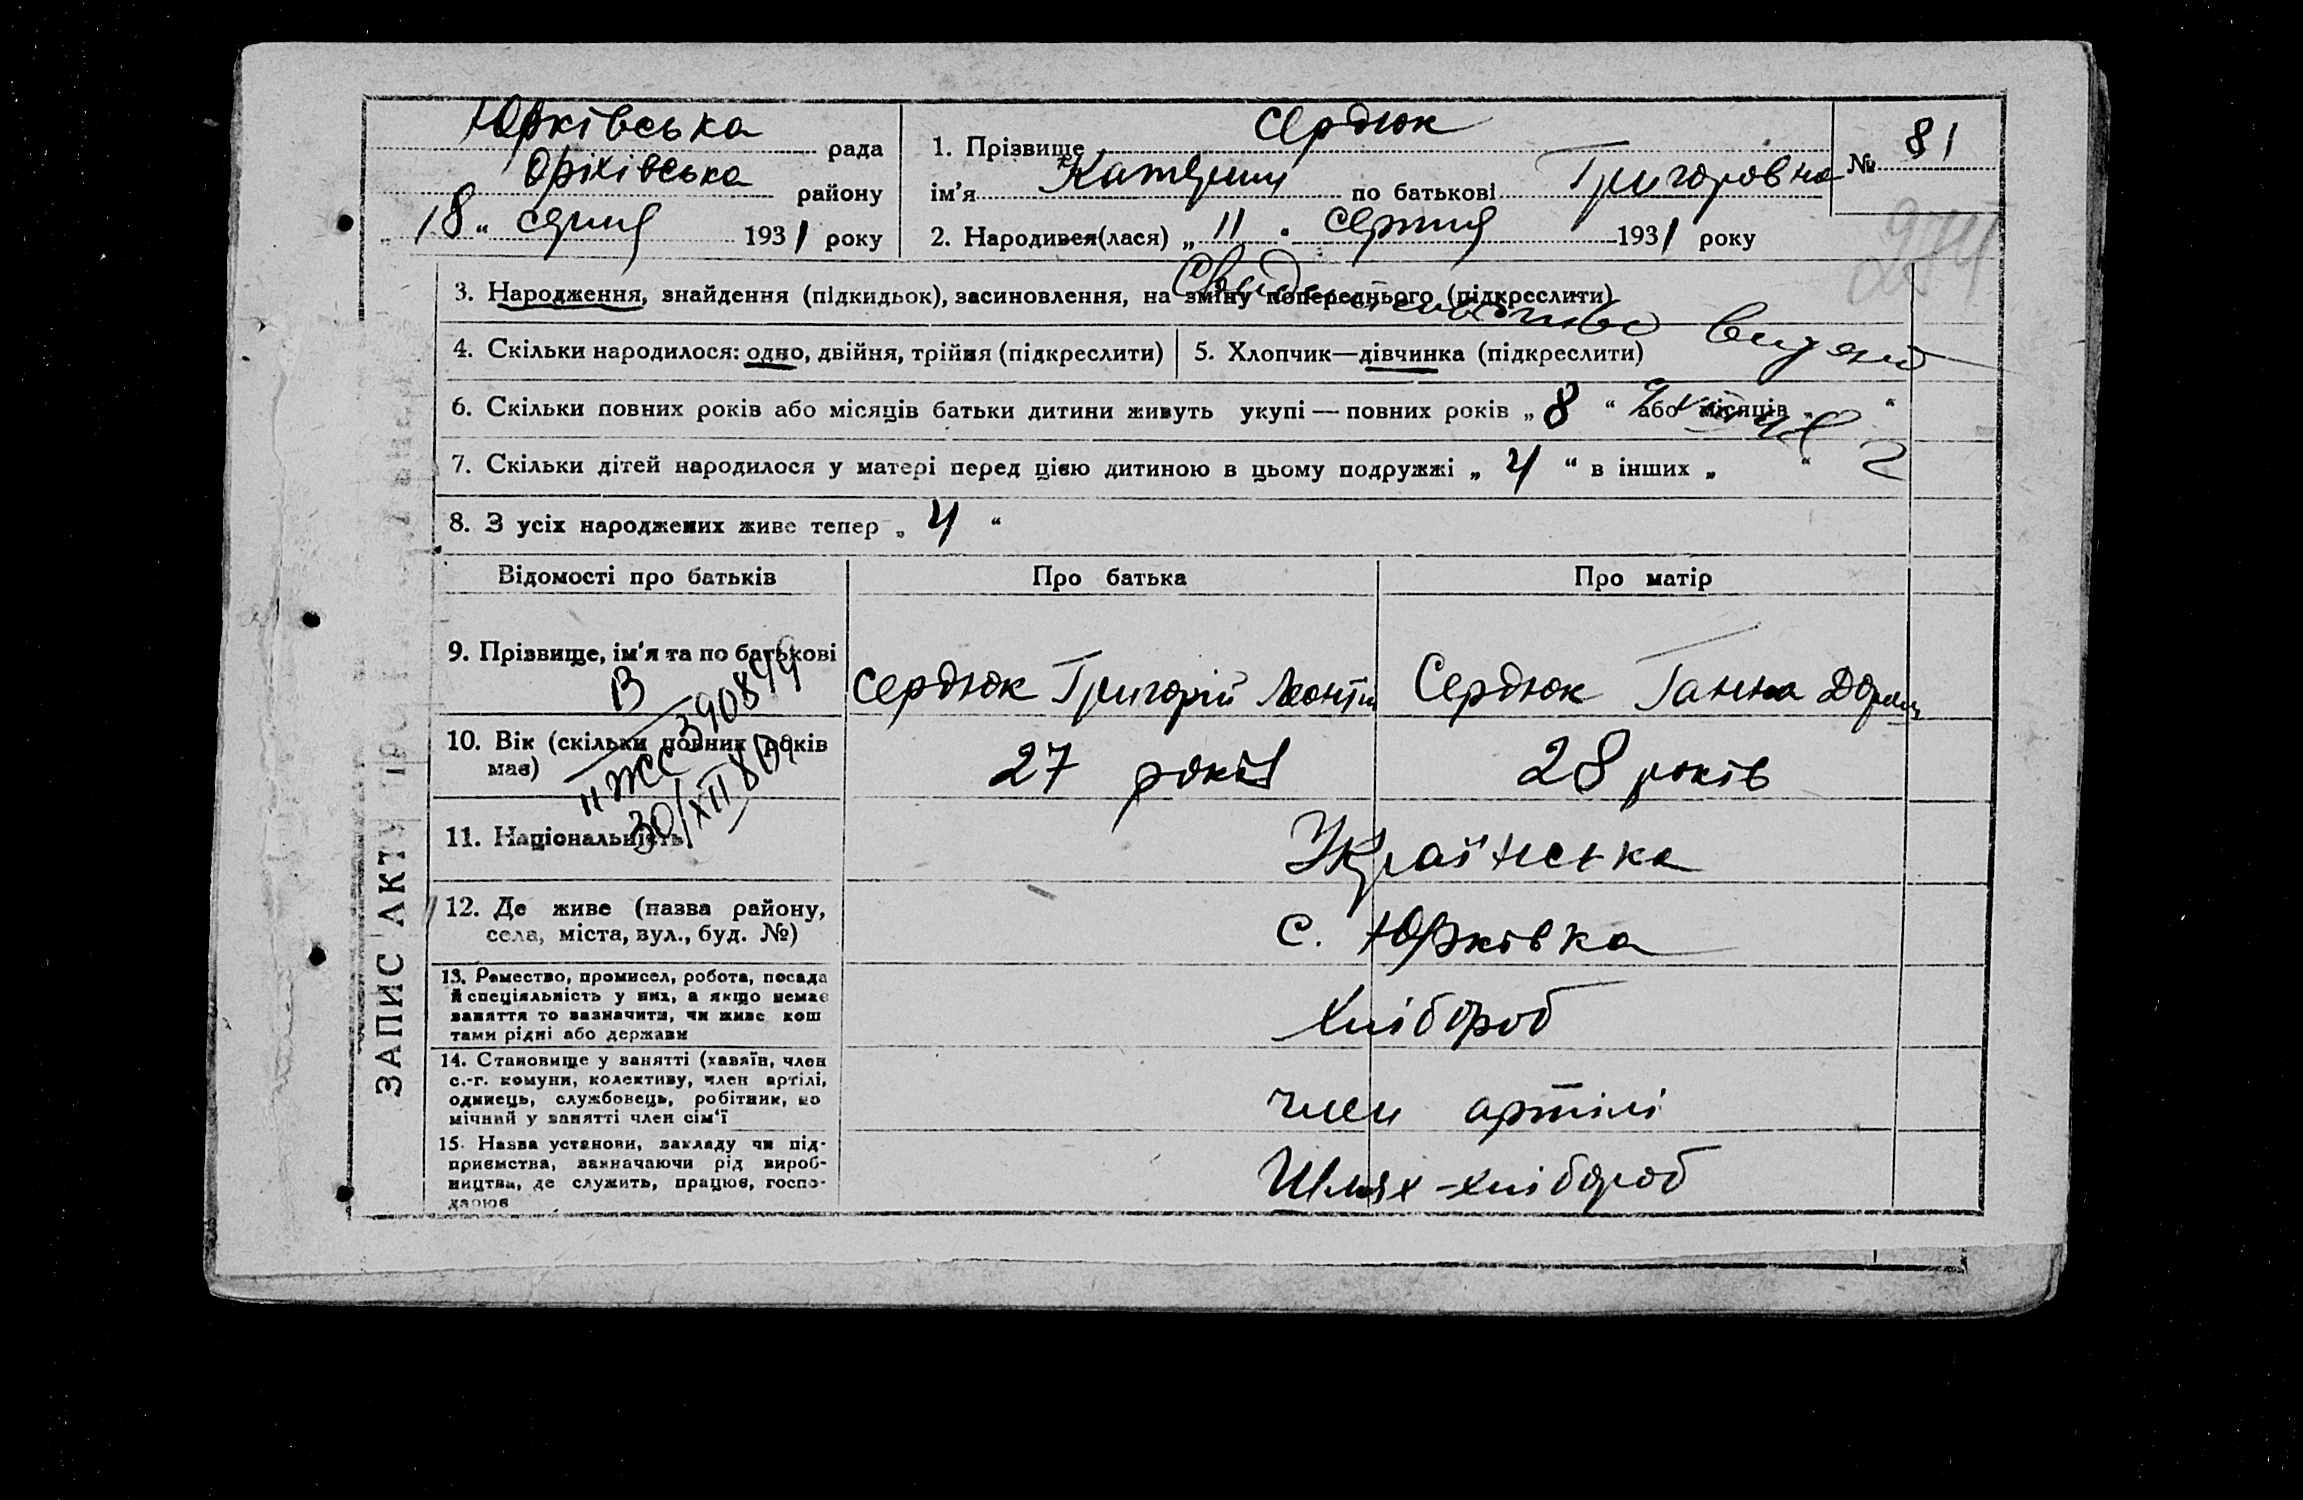 Юрківська рада
Оріхівська району
„18“ серпня 1931 року
1. Прізвище Сердюк
ім'я Катерина по батькові Григоровна
2. Народився(лася) „11“ серпня 1931 року
№ 81
274
3. Народження, знайдення (підкидьок), засиновлення, на зміну попереднього (підкреслити)
4. Скільки народилося: одно, двійня, трійня (підкреслити)
5. Хлопчик—дівчинка (підкреслити)
6. Скільки повних років або місяців батьки дитини живуть укупі — повних років „8“ або місяців „ “
7. Скільки дітей народилося у матері перед цією дитиною в цьому подружжі „4“ в інших „ “
8. З усіх народжених живе тепер „4“
Відомості про батьків
Про батька
Про матір
9. Прізвище, ім'я та по батькові
Сердюк Григорій Леонтій
Сердюк Ганна
10. Вік (скільки повних років
має)
27 років
28 років
11. Національність
Українська
12. Де живе (назва району,
села, міста, вул., буд. №)
с. Юрківка
13. Ремество, промисел, робота, посада
й спеціяльність у них, а якщо немає
заняття то зазначити, чи живе кош
тами рідні або держави
Хлібороб
14. Становище у занятті (хазяїн, член
с.-г. комуни, колективу, член артілі,
одинець, службовець, робітник, по
мічний у занятті член сім'ї
член артілі
15. Назва установи, закладу чи під-
приємства, зазначаючи рід вироб-
ництва, де служить, працює, госпо-
дарює
Шлях-хлібороб
ЗАПИС АКТУ